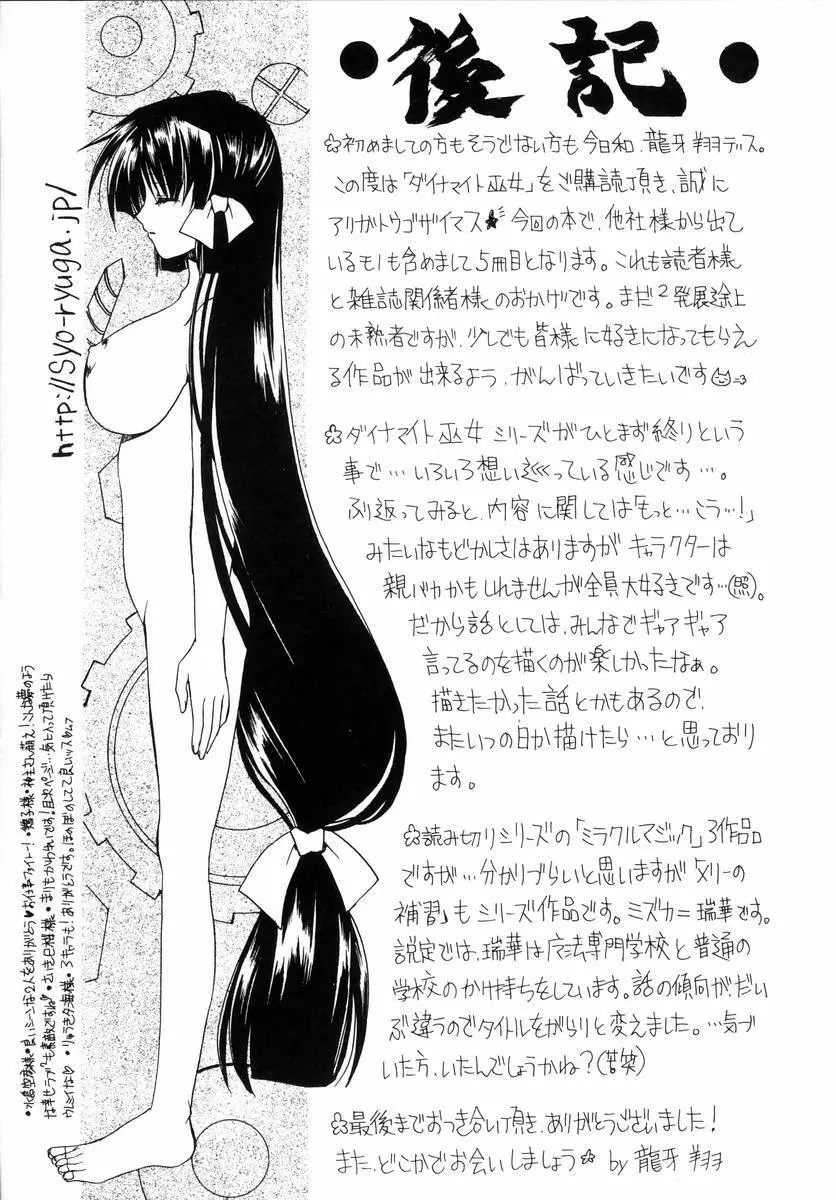 ・後記・
☆初めましての方もそうでない方も今日和、龍牙翔デス。
この度は「ダイナマイト巫女」をご購読頂き、誠に
アリガトウゴザイマス★今回の本で、他社様から出て
いるモノも含めまして5冊目となります。これも読者様
と雑誌関係者様のおかげです。まだ2発展途上
の未熟者ですが、少しでも皆様に好きになってもらえ
る作品が出来るよう、がんばっていきたいです
☆ダイナマイト巫女シリーズがひとまず終りという
事で…いろいろ想い巡っている感じです…。
ふり返ってみると、内容に関しては「もっと…こう…!」
みたいなもどかしさはありますがキャラクターは
親バカかもしれませんが全員大好きです…(照)。
だから話としては、みんなでギャアギャア
言ってるのを描くのが楽しかったなぁ。
描きたかった話とかもあるので、
またいつの日か描けたら…と思っており
ます。
☆読み切りシリーズの「ミラクルマジック」3作品
ですが…分かりづらいと思いますが「メリーの
補習」もシリーズ作品です。ミズカ=瑞華です。
設定では、瑞華は魔法専門学校と普通の
学校のかけ持ちをしています。話の傾向がだい
ぶ違うのでタイトルをがらりと変えました。…気づ
いた方、いたんでしょうかね?(苦笑)
☆最後までおつき合い頂き、ありがとうございました!
また、どこかでお会いしましょう☆ by 龍牙 翔
http://Syo-ryuga.jp/